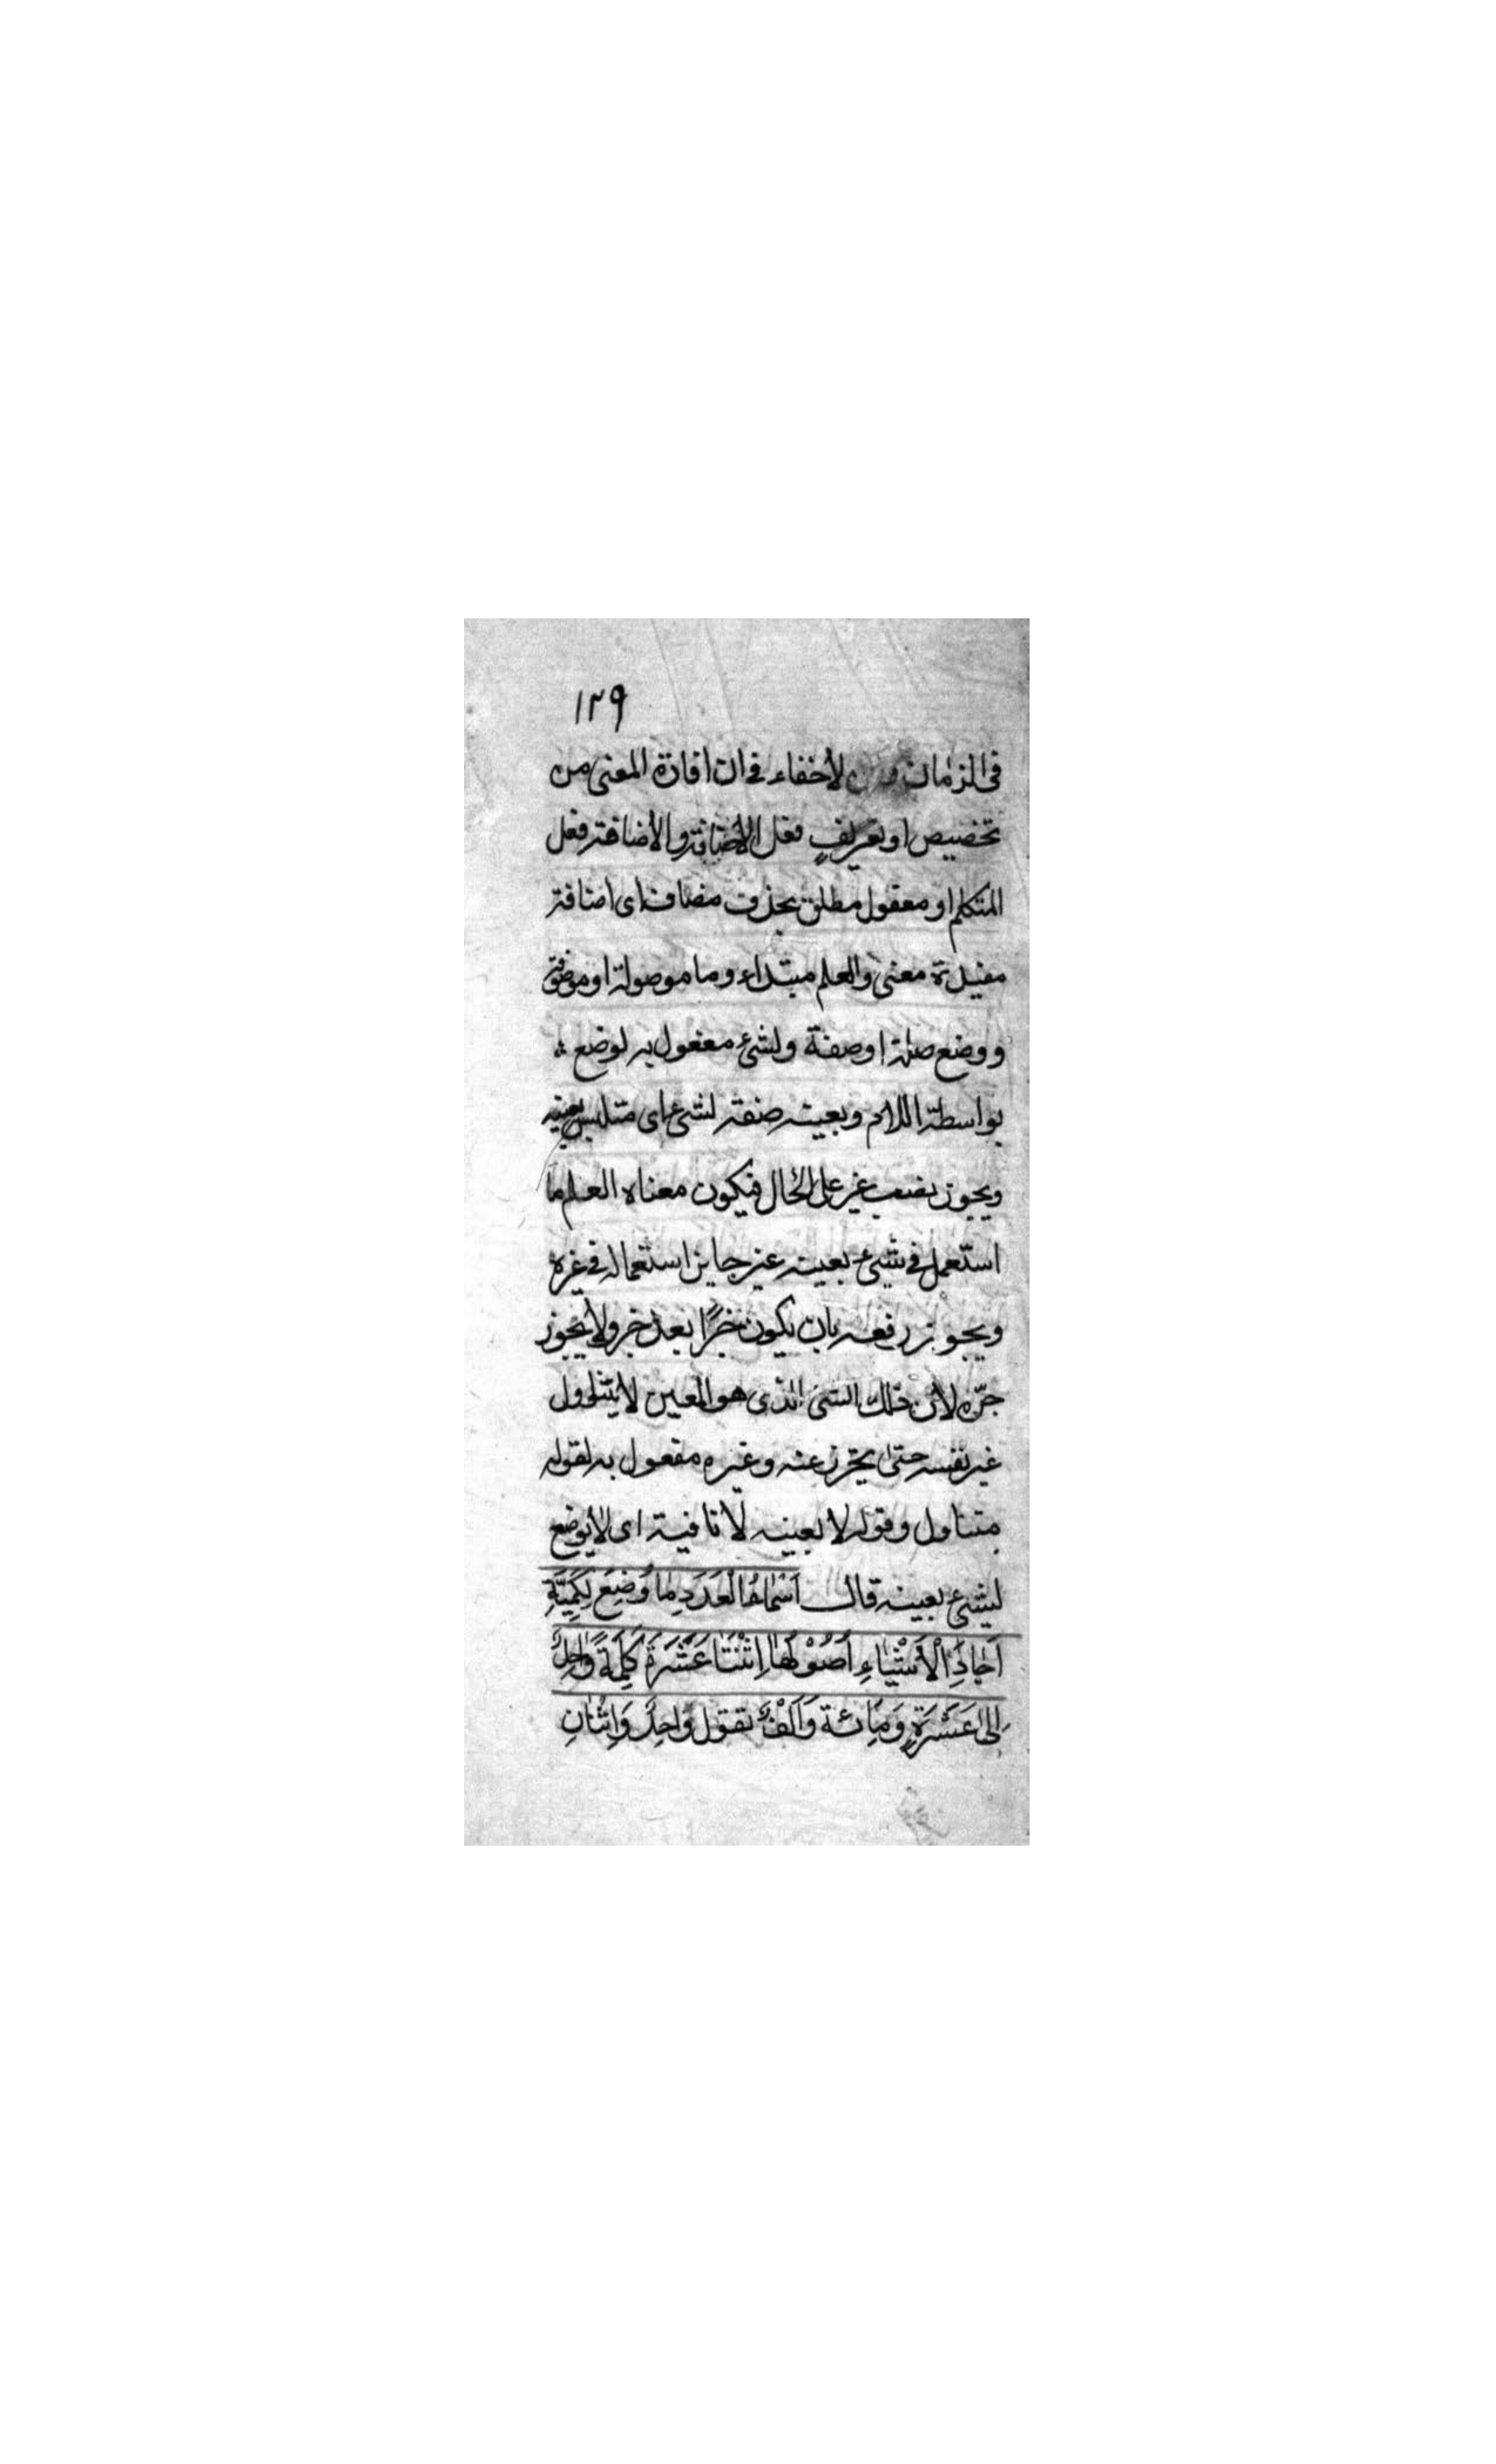 ١٢٩
فى الزمان لاخفاء فى ان افادة المعنى من
تخصيص او تعريف فعل الاضافة والاضافة فعل
المتكلم او معقول مطلق بحذف مضاف اى اضافة
مفيدة معنى والعلم مبتداء وما موصولة او موصوفة
ووضع صلة او صفة ولشئ مفعول به لوضع
بواسطة اللام وبعينه صفة لشئ اى متلبس بعينه
ويجوز نصب غير على الحال فيكون معناه العلم ما
استعمل فى شئ بعينه غير جايز استعماله فى غيره
ويجوز رفعه بان يكون خبرًا بعد خبر ولا يجوز
جرّه لان ذلك الشئ الذى هو المعين لا يتناول
غير نفسه حتى يحترز عنه وغيره مفعول به لقوله
متناول وقوله لا بعينه لا نافية اى لا يوضع
لشئ بعينه قال اَسْمَاءُ الْعَدَدِ مَا وُضِعَ لِكَمِيَّةِ
اٰحَادِ الْاَشْيَاءِ اُصُوْلُهَا اِثْنَتَا عَشَرَةَ كَلِمَةً وَاحِدٌ
اِلىٰ عَشَرَةٍ وَمِائَة وَاَلْفٌ تقول وَاحِدٌ وَاِثْنَانِ